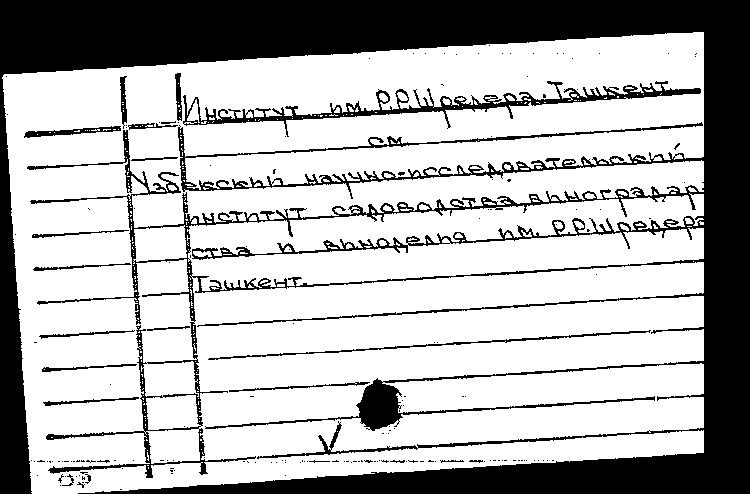 Институт им. Р.Р.Шредера. Ташкент
см.
Узбекский научно-исследовательский
институт садоводства, виноградар-
ства и виноделия им. Р.Р.Шредера
Ташкент.